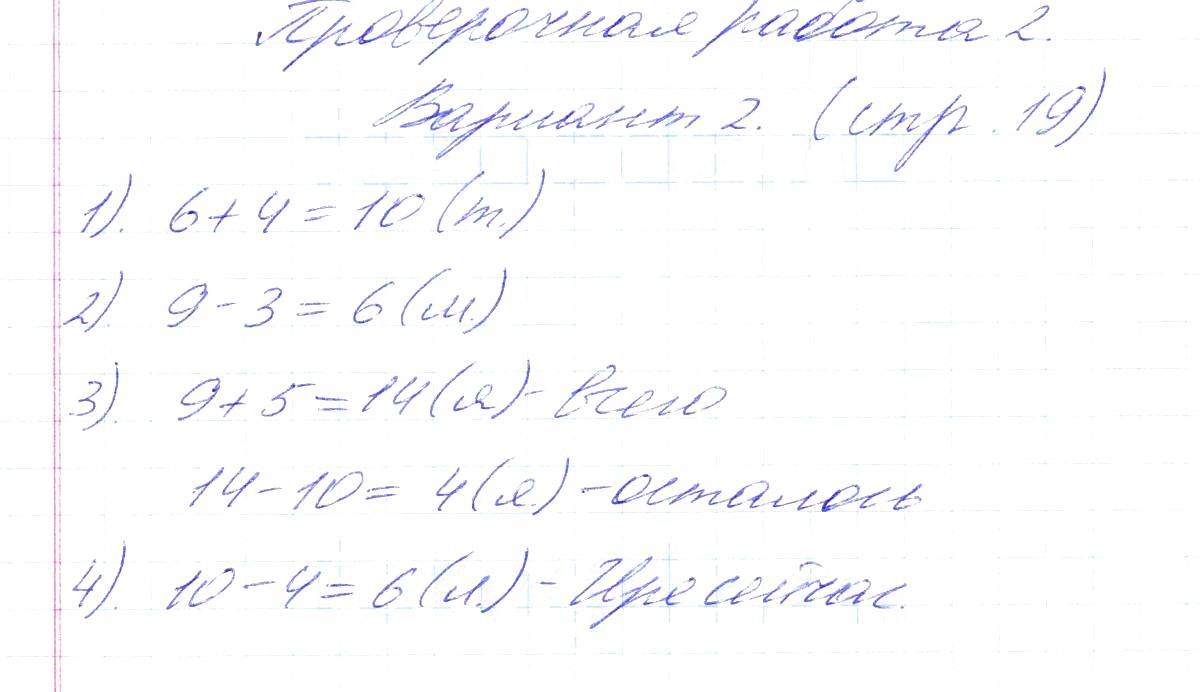 Проверочная работа 2.
Вариант 2. (стр. 19)
1). 6+4=10 (т.)
2). 9-3=6 (м.)
3). 9+5=14 (я) - всего
14-10= 4 (я.) - осталось
4). 10-4=6 (л.) - Ире сейчас.